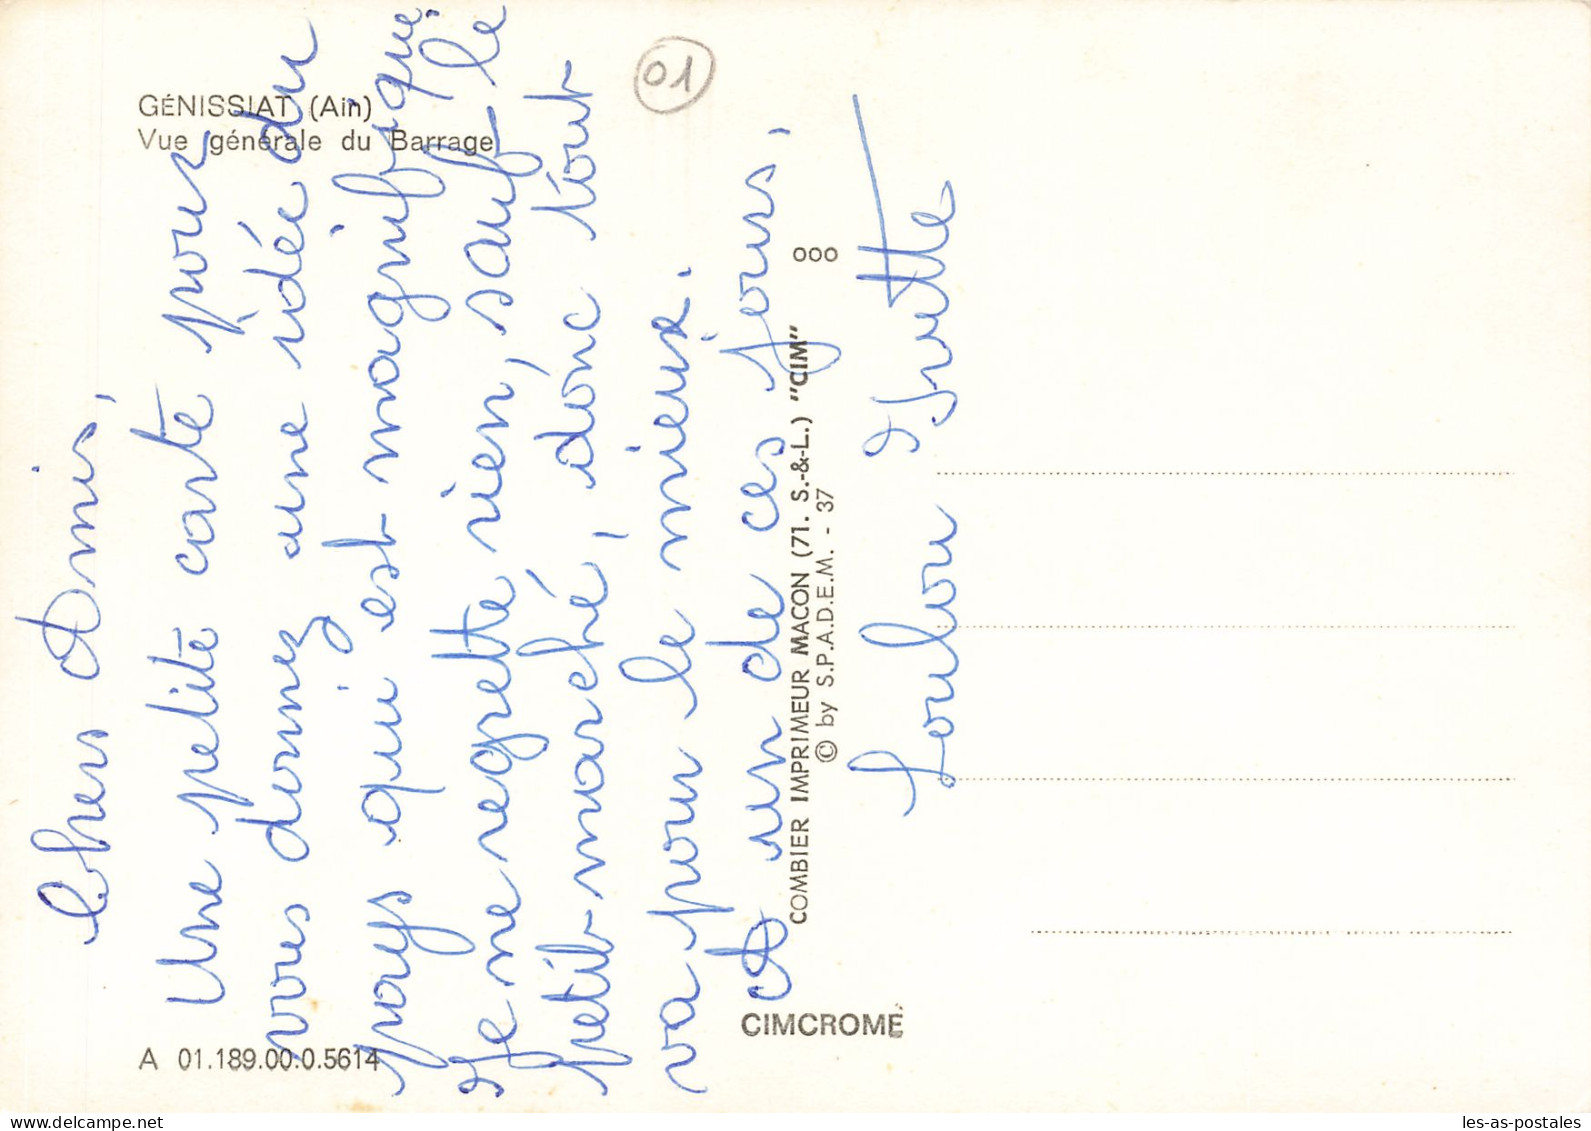 GÉNISSIAT (Ain)
Vue générale du Barrage
01
Chers Amis,
Une petite carte pour
vous donnez une idée du
pays qui est magnifique.
Je ne regrette rien, sauf le
petit-marché, donc tout
va pour le mieux.
A un de ces jours.
Loulou Yvette
ooo
COMBIER IMPRIMEUR MACON (71. S.-&-L.) "CIM"
© by S.P.A.D.E.M. - 37
CIMCROME
A 01.189.00.0.5614
les-as-postales